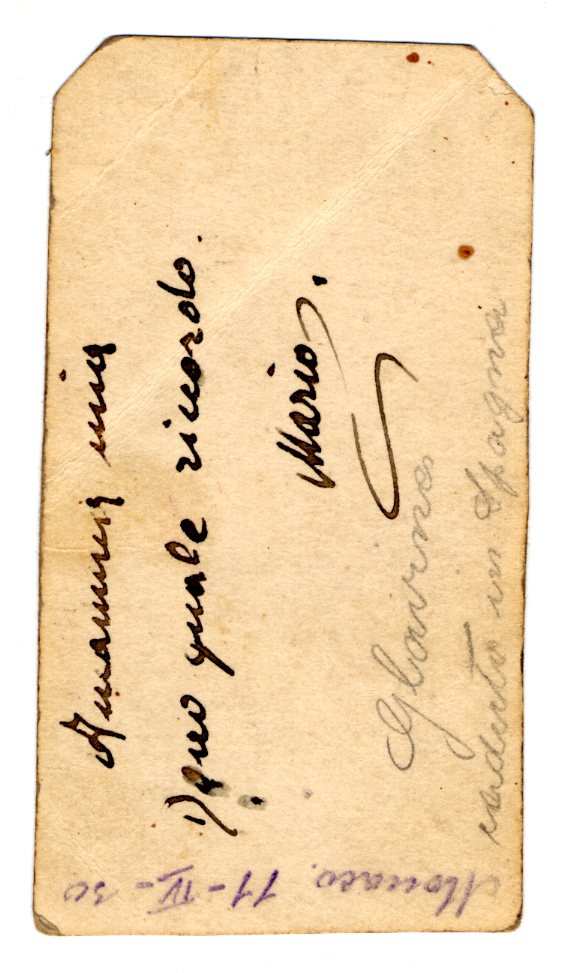 A mamma mia
Dono quale ricordo.
Mario.
Glavina
caduto in Spagna
Monaco. 11-IV-30